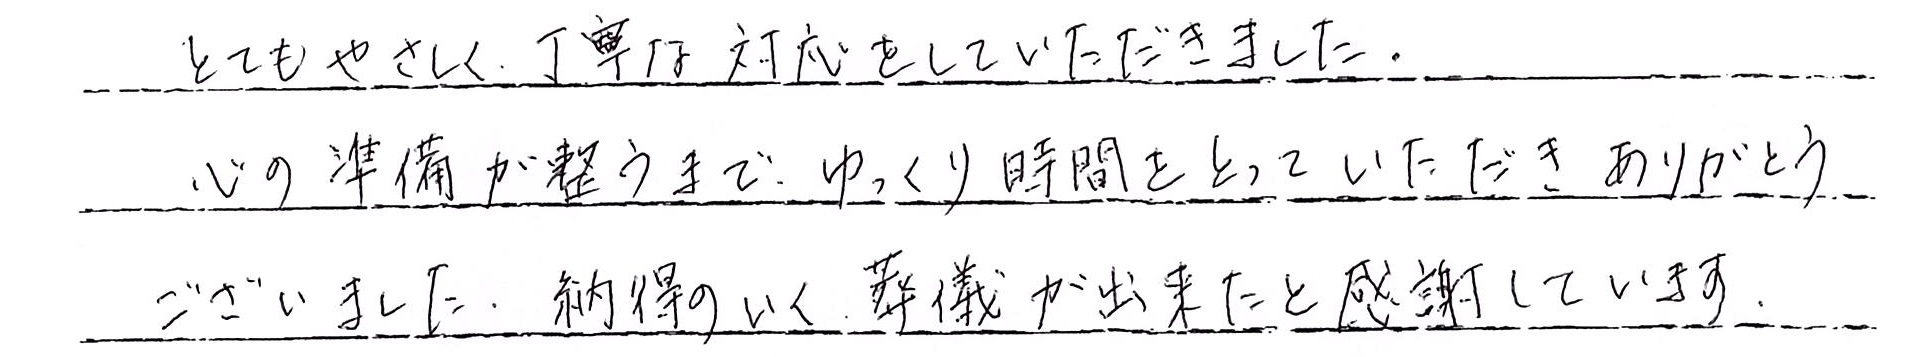 とてもやさしく、丁寧な対応をしていただきました。
心の準備が整うまで、ゆっくり時間をとっていただきありがとう
ございました。納得のいく、葬儀が出来たと感謝しています。